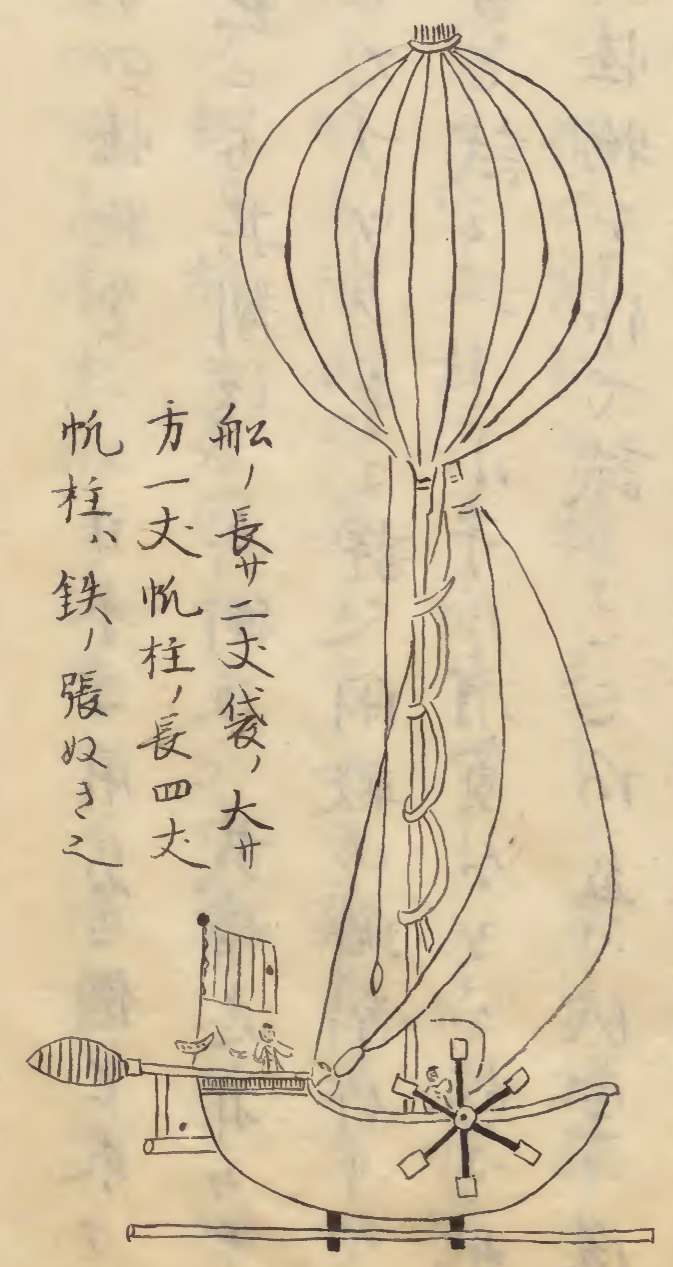 船ノ長サ二丈袋ノ大サ
方一丈帆柱ノ長四丈
帆柱ハ鉄ノ張ぬき也